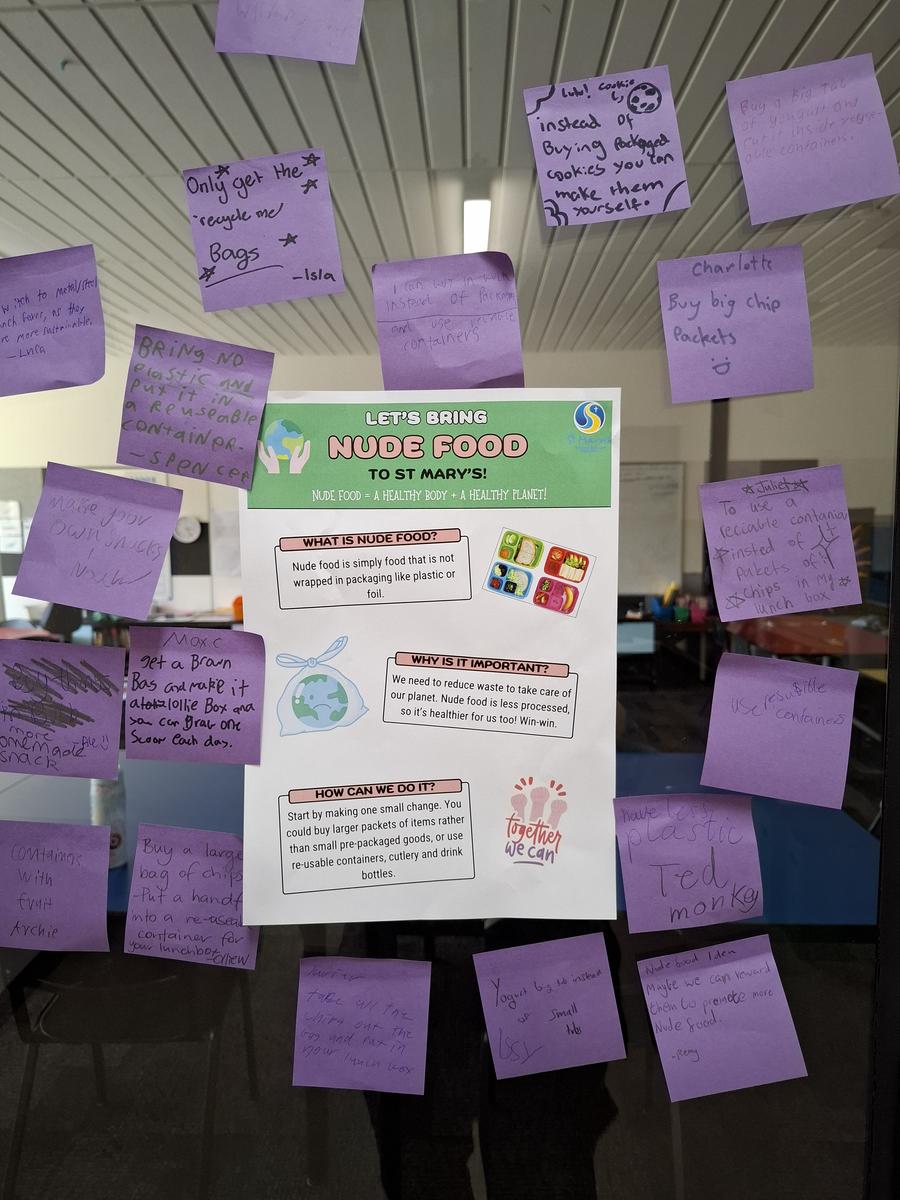 Lulu! Cookie
instead of
Buying Packaged
cookies you can
make them
yourself.
Buy a big Tub
of yougurt and
Put it inside reuse-
able containers.
Only get the
"recycle me"
Bags
-Isla
witch to metal/steel
nch
as they
re more sustainable.
- Luca
I can
instead of Packag
and use
containers
Charlotte
Buy big chip
Packets
BRING NO
plastic and
put it in
a Reuseable
container
- SPENCER
LET'S BRING
NUDE FOOD
TO ST MARY'S!
NUDE FOOD = A HEALTHY BODY + A HEALTHY PLANET!
St Mary's
Make your
own snacks
Noah
WHAT IS NUDE FOOD?
Nude food is simply food that is not
wrapped in packaging like plastic or
foil.
Juliet
To use a
reciable container
insted of
pakets of
chips in my
lunch box
Max C
get a Brawn
Bag and make it
a lollie Box and
you can Brar one
Scoor each day.
more
omemade
snack
WHY IS IT IMPORTANT?
We need to reduce waste to take care of
our planet. Nude food is less processed,
so it's healthier for us too! Win-win.
use resusible
containers
HOW CAN WE DO IT?
Start by making one small change. You
could buy larger packets of items rather
than small pre-packaged goods, or use
re-usable containers, cutlery and drink
bottles.
together
we can
have less
plastic
Ted
monkey
contaings
with
fruit
Archie
Buy a large
bag of chips
-Put a handf
into a re-aseal
container for
your lunchbox
take all the
chips out the
bag and put in
your lunch box
Yogurt big to instead
of small
tubs
Issy
Nude food Idea
Maybe we can reward
them to promote more
Nude food.
-Remy